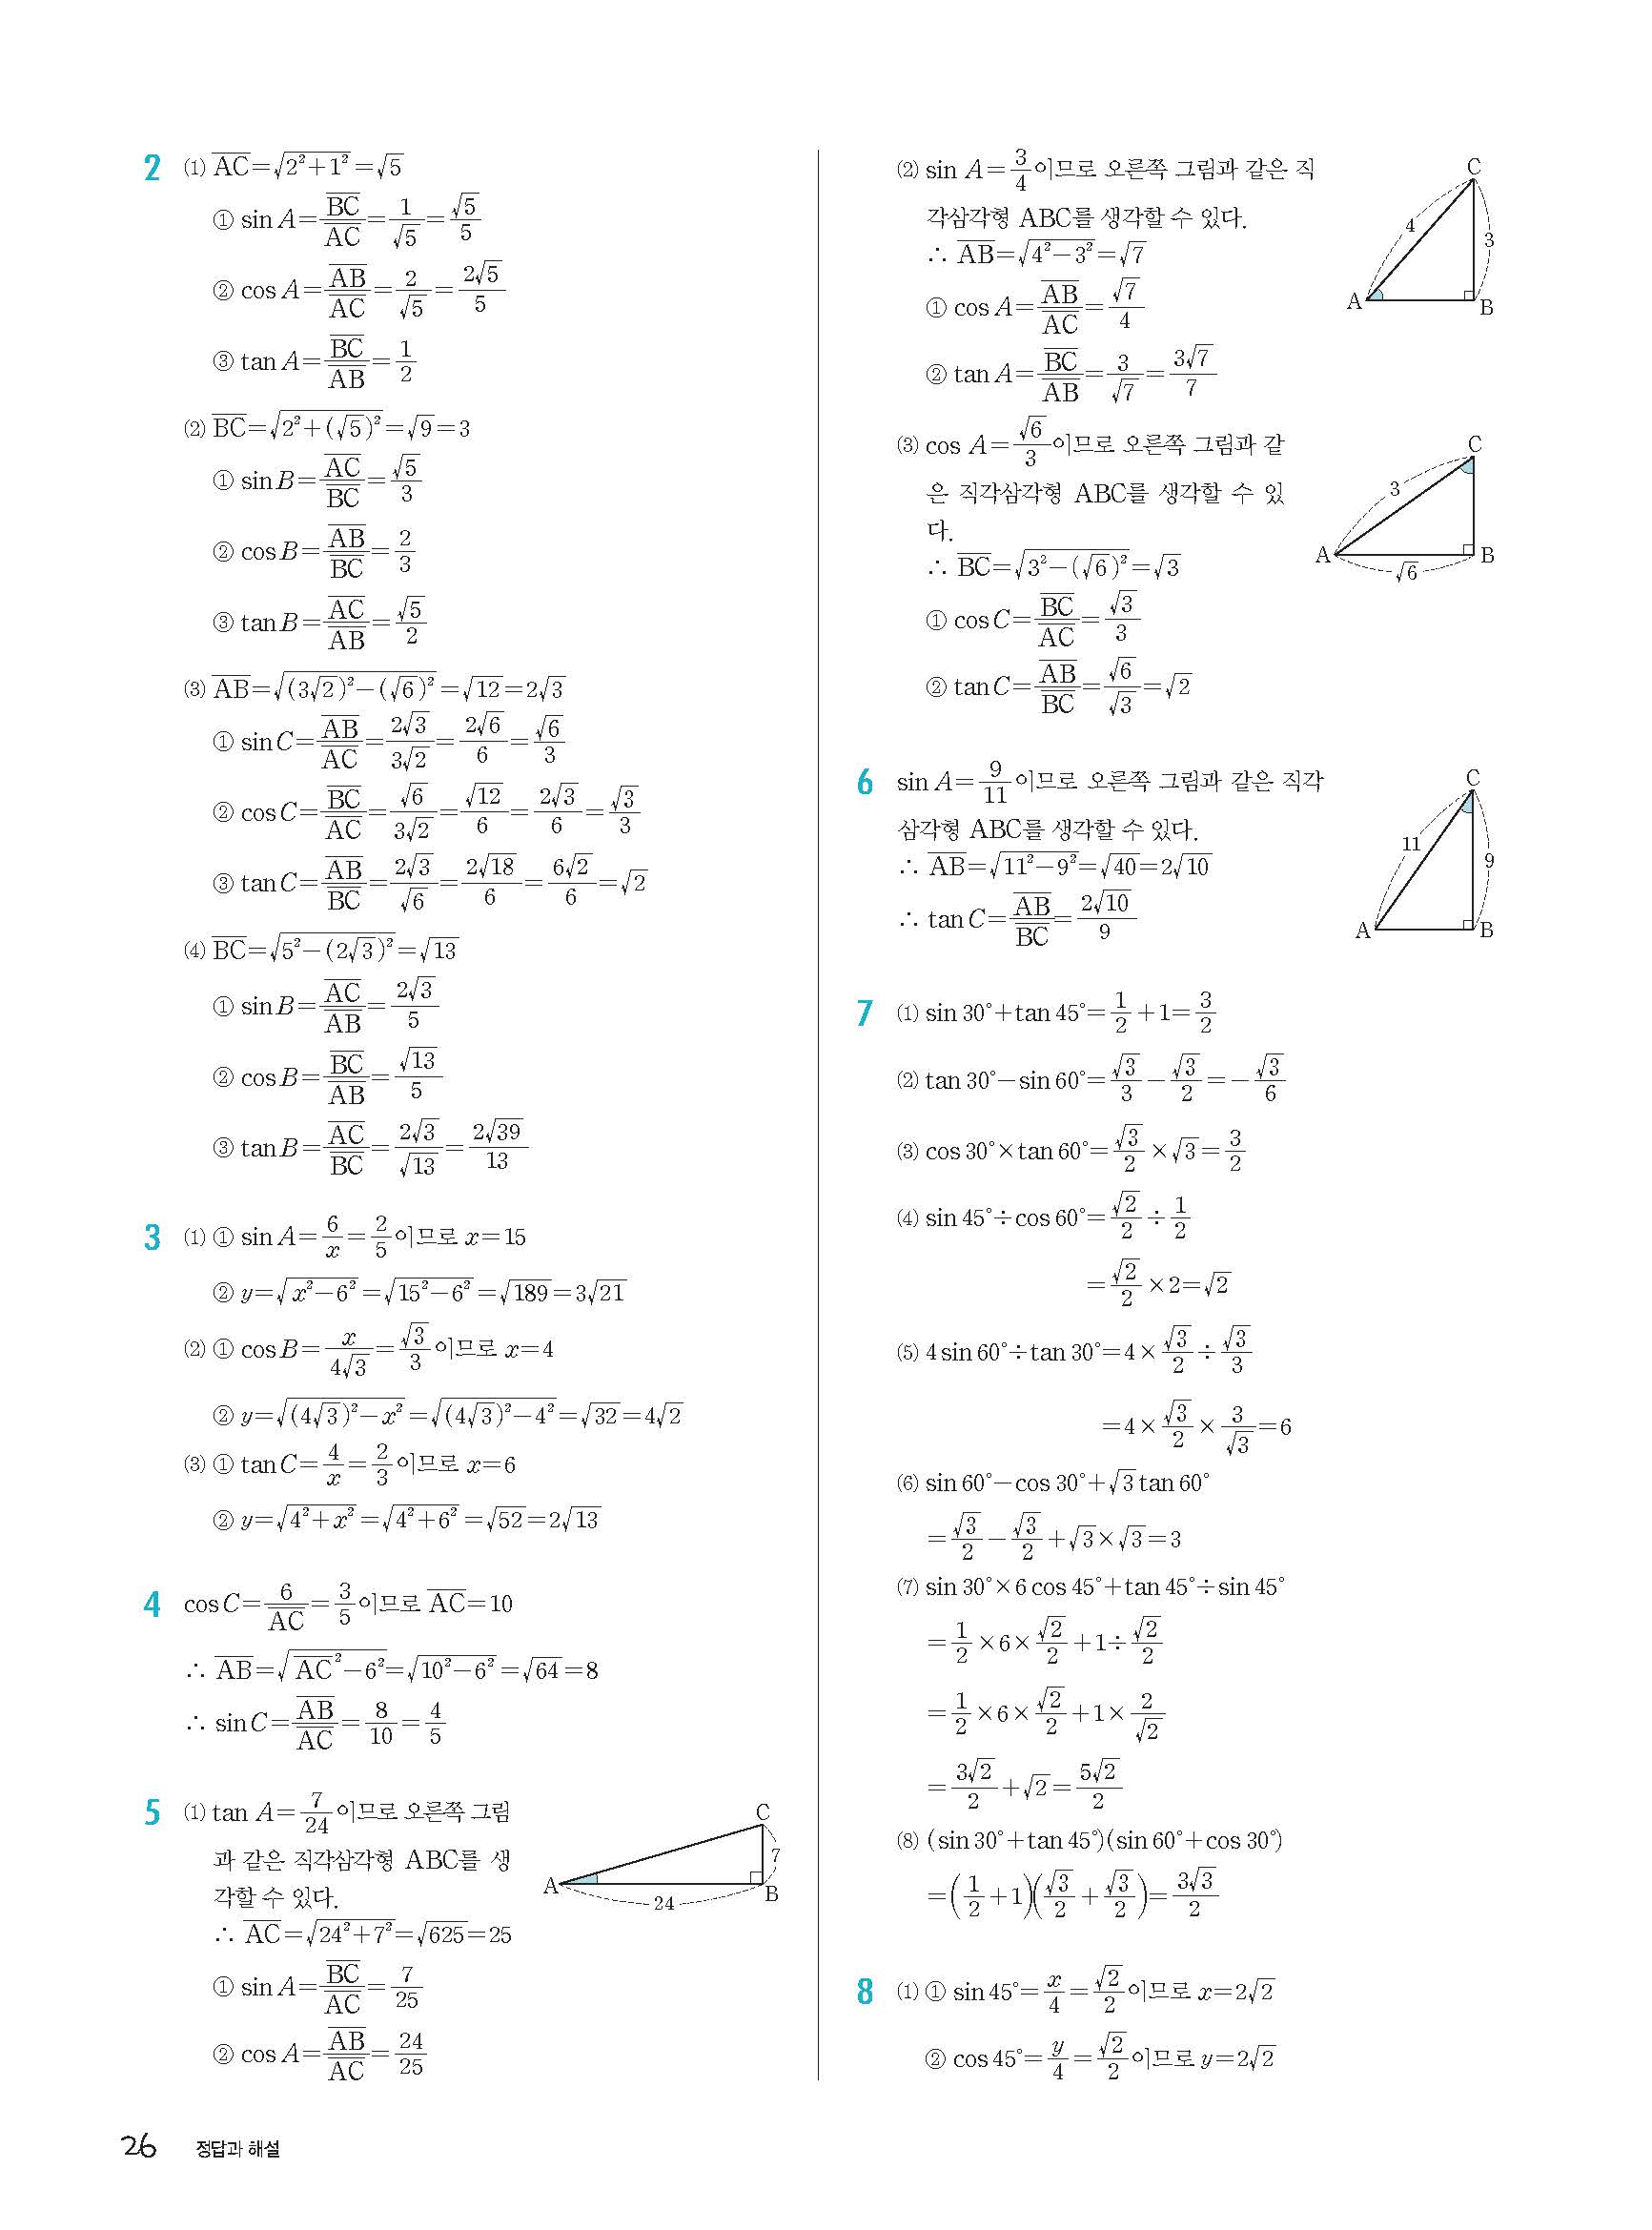 2 ⑴ $\overline{AC}=\sqrt{2^2+1^2}=\sqrt{5}$
① $\sin A=\frac{\overline{BC}}{\overline{AC}}=\frac{1}{\sqrt{5}}=\frac{\sqrt{5}}{5}$
② $\cos A=\frac{\overline{AB}}{\overline{AC}}=\frac{2}{\sqrt{5}}=\frac{2\sqrt{5}}{5}$
③ $\tan A=\frac{\overline{BC}}{\overline{AB}}=\frac{1}{2}$
⑵ $\overline{BC}=\sqrt{2^2+(\sqrt{5})^2}=\sqrt{9}=3$
① $\sin B=\frac{\overline{AC}}{\overline{BC}}=\frac{\sqrt{5}}{3}$
② $\cos B=\frac{\overline{AB}}{\overline{BC}}=\frac{2}{3}$
③ $\tan B=\frac{\overline{AC}}{\overline{AB}}=\frac{\sqrt{5}}{2}$
⑶ $\overline{AB}=\sqrt{(3\sqrt{2})^2-(\sqrt{6})^2}=\sqrt{12}=2\sqrt{3}$
① $\sin C=\frac{\overline{AB}}{\overline{AC}}=\frac{2\sqrt{3}}{3\sqrt{2}}=\frac{2\sqrt{6}}{6}=\frac{\sqrt{6}}{3}$
② $\cos C=\frac{\overline{BC}}{\overline{AC}}=\frac{\sqrt{6}}{3\sqrt{2}}=\frac{\sqrt{12}}{6}=\frac{2\sqrt{3}}{6}=\frac{\sqrt{3}}{3}$
③ $\tan C=\frac{\overline{AB}}{\overline{BC}}=\frac{2\sqrt{3}}{\sqrt{6}}=\frac{2\sqrt{18}}{6}=\frac{6\sqrt{2}}{6}=\sqrt{2}$
⑷ $\overline{BC}=\sqrt{5^2-(2\sqrt{3})^2}=\sqrt{13}$
① $\sin B=\frac{\overline{AC}}{\overline{AB}}=\frac{2\sqrt{3}}{5}$
② $\cos B=\frac{\overline{BC}}{\overline{AB}}=\frac{\sqrt{13}}{5}$
③ $\tan B=\frac{\overline{AC}}{\overline{BC}}=\frac{2\sqrt{3}}{\sqrt{13}}=\frac{2\sqrt{39}}{13}$
3 ⑴ ① $\sin A=\frac{6}{x}=\frac{2}{5}$이므로 $x=15$
② $y=\sqrt{x^2-6^2}=\sqrt{15^2-6^2}=\sqrt{189}=3\sqrt{21}$
⑵ ① $\cos B=\frac{x}{4\sqrt{3}}=\frac{\sqrt{3}}{3}$이므로 $x=4$
② $y=\sqrt{(4\sqrt{3})^2-x^2}=\sqrt{(4\sqrt{3})^2-4^2}=\sqrt{32}=4\sqrt{2}$
⑶ ① $\tan C=\frac{4}{x}=\frac{2}{3}$이므로 $x=6$
② $y=\sqrt{4^2+x^2}=\sqrt{4^2+6^2}=\sqrt{52}=2\sqrt{13}$
4 $\cos C=\frac{6}{\overline{AC}}=\frac{3}{5}$이므로 $\overline{AC}=10$
∴ $\overline{AB}=\sqrt{\overline{AC}^2-6^2}=\sqrt{10^2-6^2}=\sqrt{64}=8$
∴ $\sin C=\frac{\overline{AB}}{\overline{AC}}=\frac{8}{10}=\frac{4}{5}$
5 ⑴ $\tan A=\frac{7}{24}$이므로 오른쪽 그림
과 같은 직각삼각형 ABC를 생
각할 수 있다.
C
7
A
24
B
∴ $\overline{AC}=\sqrt{24^2+7^2}=\sqrt{625}=25$
① $\sin A=\frac{\overline{BC}}{\overline{AC}}=\frac{7}{25}$
② $\cos A=\frac{\overline{AB}}{\overline{AC}}=\frac{24}{25}$
⑵ $\sin A=\frac{3}{4}$이므로 오른쪽 그림과 같은 직
각삼각형 ABC를 생각할 수 있다.
C
4
3
A
B
∴ $\overline{AB}=\sqrt{4^2-3^2}=\sqrt{7}$
① $\cos A=\frac{\overline{AB}}{\overline{AC}}=\frac{\sqrt{7}}{4}$
② $\tan A=\frac{\overline{BC}}{\overline{AB}}=\frac{3}{\sqrt{7}}=\frac{3\sqrt{7}}{7}$
⑶ $\cos A=\frac{\sqrt{6}}{3}$이므로 오른쪽 그림과 같
은 직각삼각형 ABC를 생각할 수 있
다.
C
3
A
B
$\sqrt{6}$
∴ $\overline{BC}=\sqrt{3^2-(\sqrt{6})^2}=\sqrt{3}$
① $\cos C=\frac{\overline{BC}}{\overline{AC}}=\frac{\sqrt{3}}{3}$
② $\tan C=\frac{\overline{AB}}{\overline{BC}}=\frac{\sqrt{6}}{\sqrt{3}}=\sqrt{2}$
6 $\sin A=\frac{9}{11}$이므로 오른쪽 그림과 같은 직각
삼각형 ABC를 생각할 수 있다.
C
11
9
A
B
∴ $\overline{AB}=\sqrt{11^2-9^2}=\sqrt{40}=2\sqrt{10}$
∴ $\tan C=\frac{\overline{AB}}{\overline{BC}}=\frac{2\sqrt{10}}{9}$
7 ⑴ $\sin 30°+\tan 45°=\frac{1}{2}+1=\frac{3}{2}$
⑵ $\tan 30°-\sin 60°=\frac{\sqrt{3}}{3}-\frac{\sqrt{3}}{2}=-\frac{\sqrt{3}}{6}$
⑶ $\cos 30°×\tan 60°=\frac{\sqrt{3}}{2}×\sqrt{3}=\frac{3}{2}$
⑷ $\sin 45°÷\cos 60°=\frac{\sqrt{2}}{2}÷\frac{1}{2}$
$=\frac{\sqrt{2}}{2}×2=\sqrt{2}$
⑸ $4\sin 60°÷\tan 30°=4×\frac{\sqrt{3}}{2}÷\frac{\sqrt{3}}{3}$
$=4×\frac{\sqrt{3}}{2}×\frac{3}{\sqrt{3}}=6$
⑹ $\sin 60°-\cos 30°+\sqrt{3}\tan 60°$
$=\frac{\sqrt{3}}{2}-\frac{\sqrt{3}}{2}+\sqrt{3}×\sqrt{3}=3$
⑺ $\sin 30°×6\cos 45°+\tan 45°÷\sin 45°$
$=\frac{1}{2}×6×\frac{\sqrt{2}}{2}+1÷\frac{\sqrt{2}}{2}$
$=\frac{1}{2}×6×\frac{\sqrt{2}}{2}+1×\frac{2}{\sqrt{2}}$
$=\frac{3\sqrt{2}}{2}+\sqrt{2}=\frac{5\sqrt{2}}{2}$
⑻ $(\sin 30°+\tan 45°)(\sin 60°+\cos 30°)$
$=\left(\frac{1}{2}+1\right)\left(\frac{\sqrt{3}}{2}+\frac{\sqrt{3}}{2}\right)=\frac{3\sqrt{3}}{2}$
8 ⑴ ① $\sin 45°=\frac{x}{4}=\frac{\sqrt{2}}{2}$이므로 $x=2\sqrt{2}$
② $\cos 45°=\frac{y}{4}=\frac{\sqrt{2}}{2}$이므로 $y=2\sqrt{2}$
26 정답과 해설